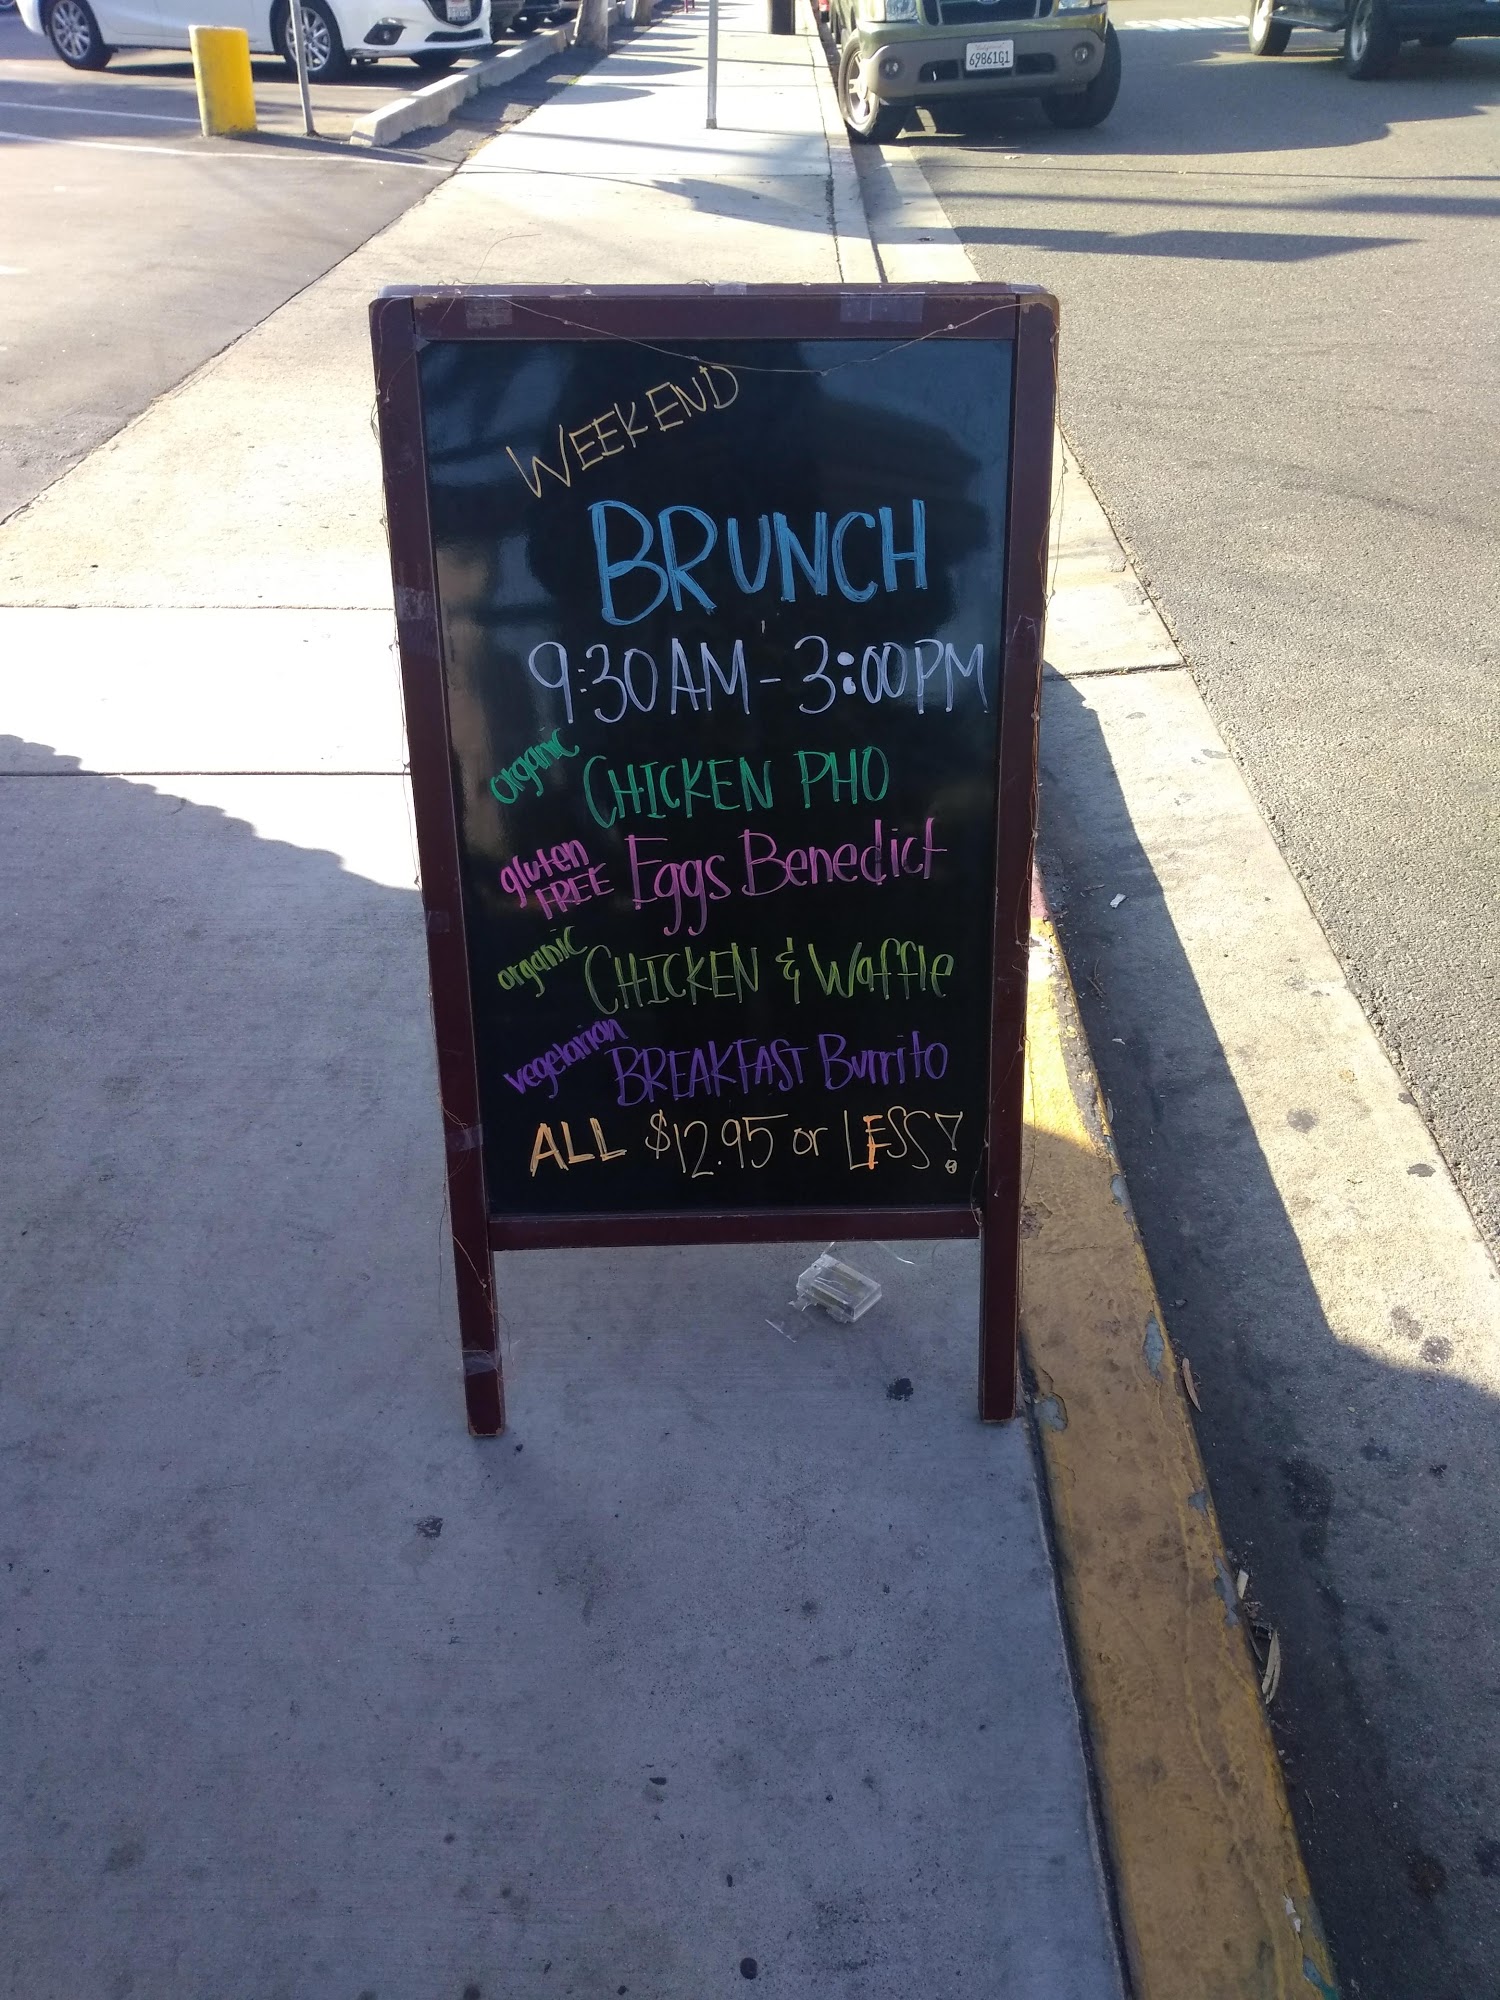 69861G1
WEEKEND
BRUNCH
9:30AM - 3:00PM
organic CHICKEN PHO
gluten FREE Eggs Benedict
organic CHICKEN & Waffle
vegetarian BREAKFAST Burrito
ALL $12.95 or LESS!